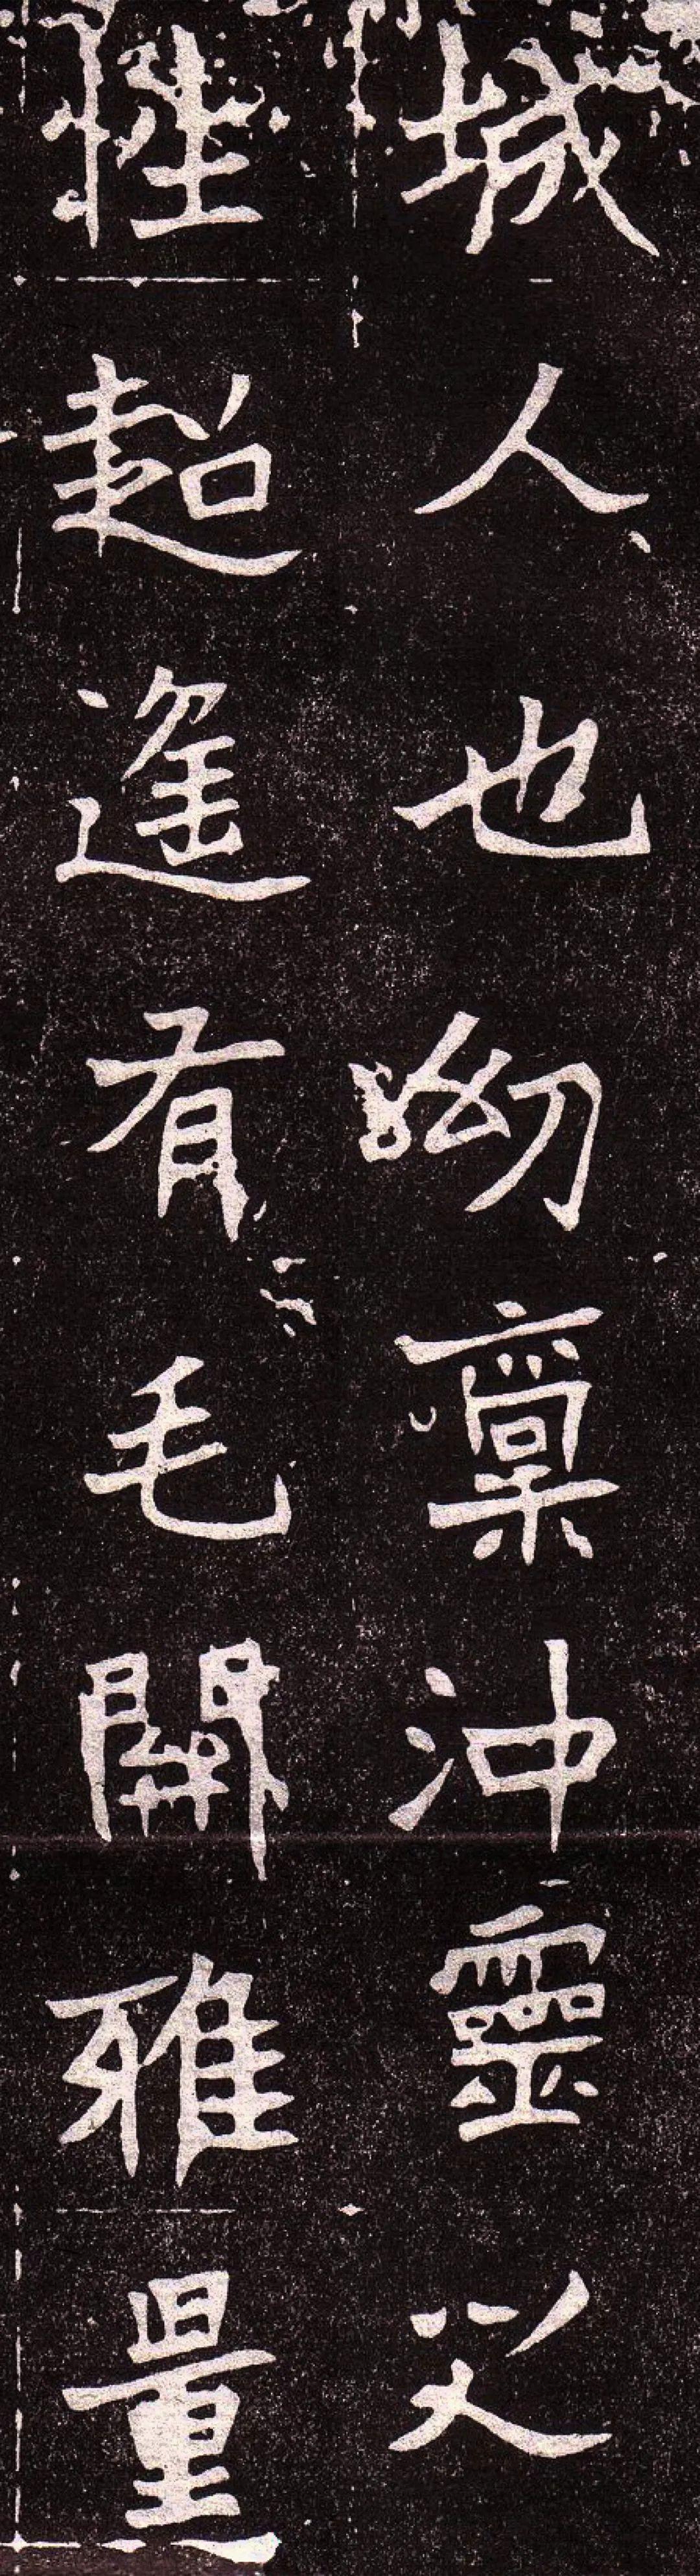 城人也㓜稟沖靈之
性超遙有毛開雅量